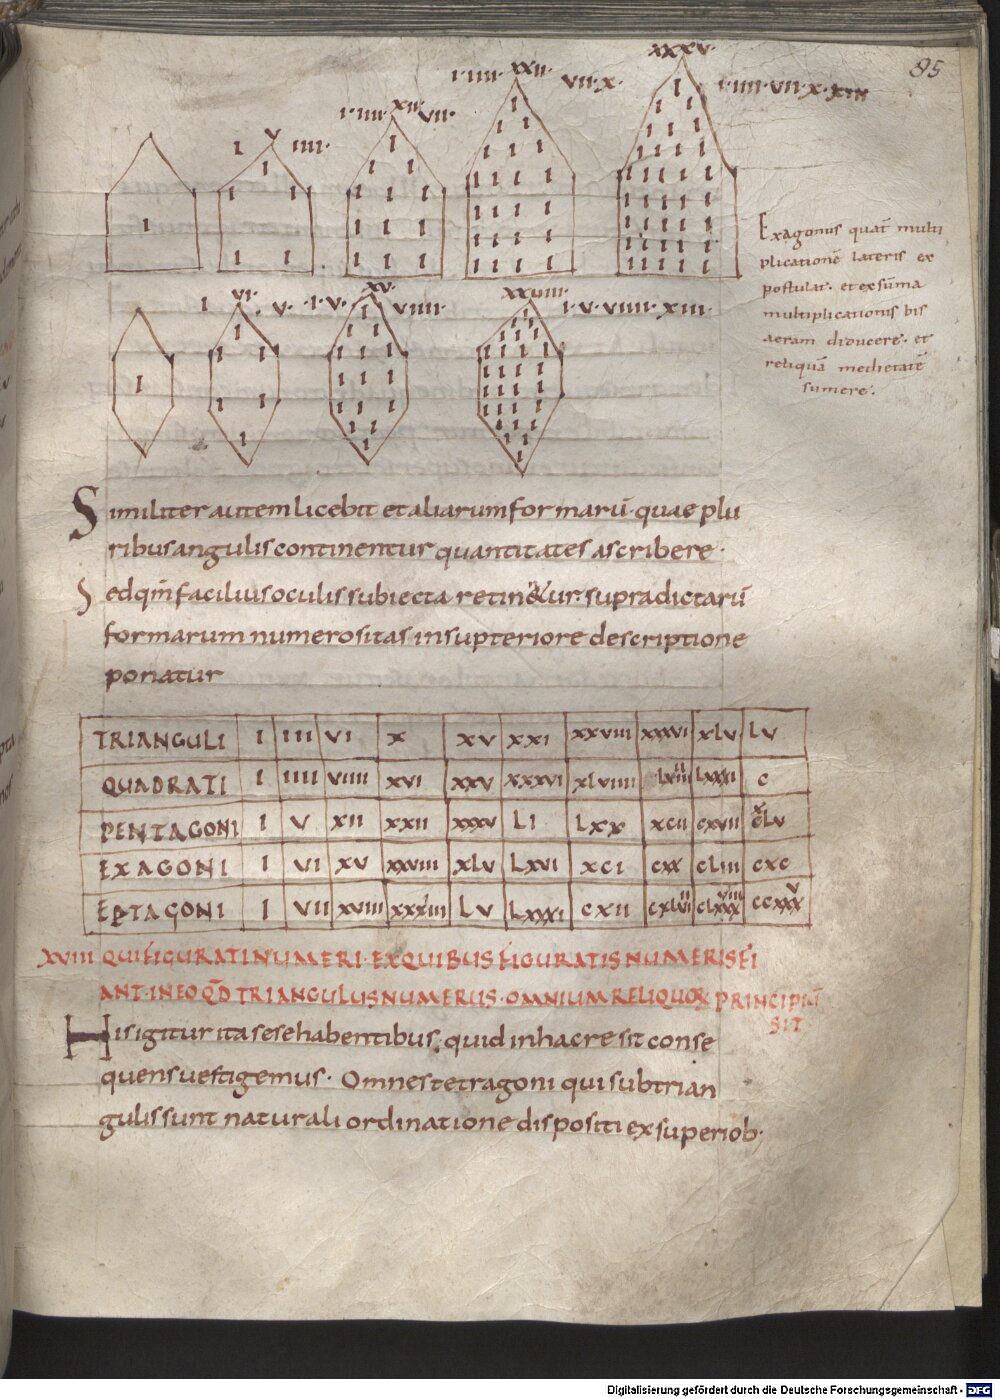 85
xxxv·
ı·ıııı· xxıı· vıı·x· ı·ıııı·vıı·x·xııı
ı·ıııı· xıı· vıı·
ı v ıııı·
ı vı· v· ı·v· xv· vıııı· xxvııı· ı·v·vıııı·xııı·
Exagonus quat̄ multi
plicationē lateris ex
postulat· et ex sūma
multiplicationis bis
aeram diducere· et
reliquā medietatē
sumere·
Similiter autem licebit et aliarum formarū· quae plu
ribus angulis continentur quantitates ascribere·
Sed qm̄ facilius oculis subiecta retin&ur· supradictarū
formarum numerositas in supteriore descriptione
ponatur
TRIANGULI I III VI X XV XXI XXVIII XXXVI XLV LV
QUADRATI I IIII VIIII XVI XXV XXXVI XLVIIII LXIIII LXXXI C
PENTAGONI I V XII XXII XXXV LI LXX XCII CXVII CXLV
EXAGONI I VI XV XXVIII XLV LXVI XCI CXX CLIII CXC
EPTAGONI I VII XVIII XXXIIII LV LXXXI CXII CXLVIII CLXXXVIIII CCXXXV
XVIII QUI FIGURATI NUMERI· EX QUIBUS FIGURATIS NUMERIS FI
ANT· IN EO Q̄D TRIANGULUS NUMERUS· OMNIUM RELIQUOꝜ PRINCIPIŪ
SIT
His igitur ita sese habentibus· quid in hac re sit conse
quens vestigemus· Omnes tetragoni qui sub trian
gulis sunt naturali ordinatione dispositi ex superiob·